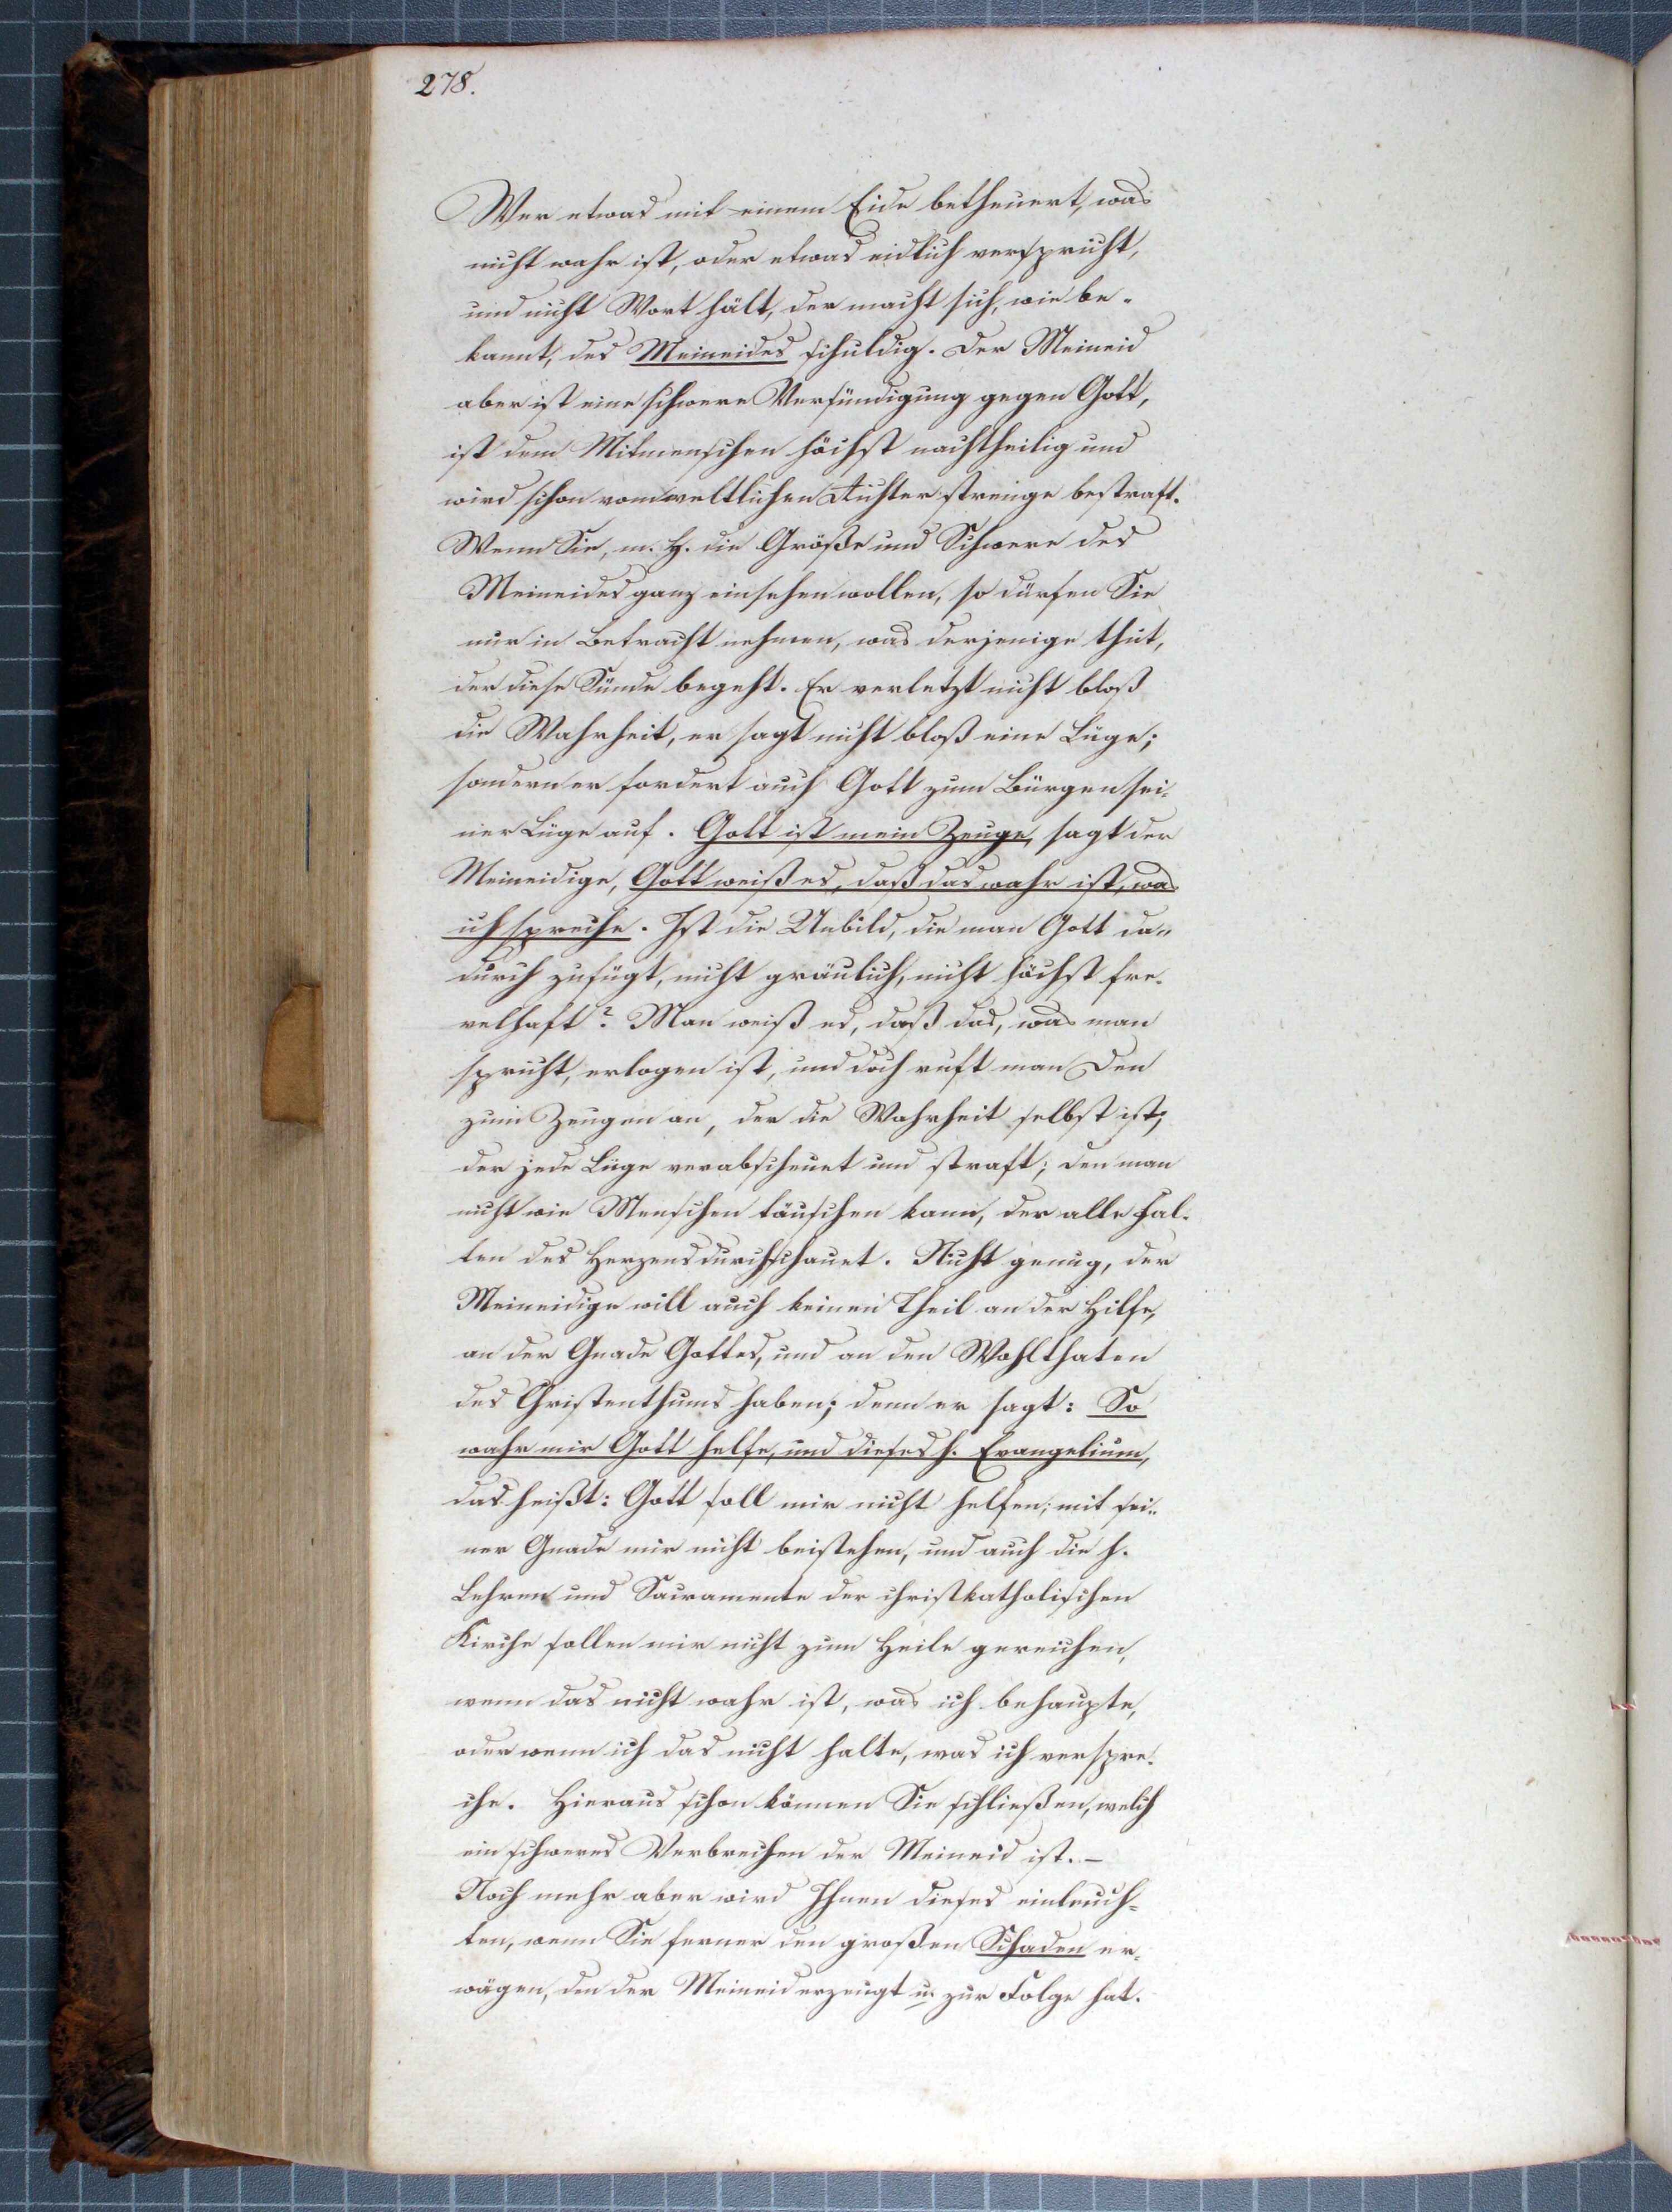 278.
Wer etwas mit einem Eide betheuert, was
nicht wahr ist, oder etwas eidlich verspricht,
und nicht Wort hält, der macht sich, wie be-
kannt, des Meineides schuldig. Der Meineid
aber ist eine schwere Versündigung gegen Gott,
ist dem Mitmenschen höchst nachtheilig und
wird schon vom weltlichen Richter strenge bestraft.
Wenn Sie, m. H. die Größe und Schwere des
Meineides ganz einsehen wollen, so dürfen Sie
nur in Betracht nehmen, was derjenige thut,
der diese Sünde begeht. Er verletzt nicht bloß
die Wahrheit, er sagt nicht bloß eine Lüge;
sondern er fordert auch Gott zum Bürgen sei-
ner Lüge auf. Gott ist mein Zeuge, sagt der
Meineidige, Gott weiß es, daß das wahr ist, was
ich spreche. Ist die Unbild, die man Gott da-
durch zufügt, nicht gräulich, nicht höchst fre-
velhaft? Man weiß es, daß das, was man
spricht, erlogen ist, und doch ruft man Den
zum Zeugen an, der die Wahrheit selbst ist,
der jede Lüge verabscheuet und straft; den man
nicht wie Menschen täuschen kann, der alle Fal-
ten des Herzens durchschauet. Nicht genug, der
Meineidige will auch keinen Theil an der Hilfe,
an der Gnade Gottes, und an den Wohlthaten
des Christenthums haben; denn er sagt: So
wahr mir Gott helfe, und dieses h. Evangelium,
das heißt: Gott soll mir nicht helfen; mit sei-
ner Gnade mir nicht beistehen, und auch die h.
Lehren und Sacramente der christkatholischen
Kirche sollen mir nicht zum Heile gereichen,
wenn das nicht wahr ist, was ich behaupte,
oder wenn ich das nicht halte, was ich verspre-
che. Hieraus schon können Sie schließen, welch
ein schweres Verbrechen der Meineid ist. –
Noch mehr aber wird Ihnen dieses einleuch-
ten, wenn Sie ferner den großen Schaden er-
wägen, den der Meineid erzeugt u. zur Folge hat.